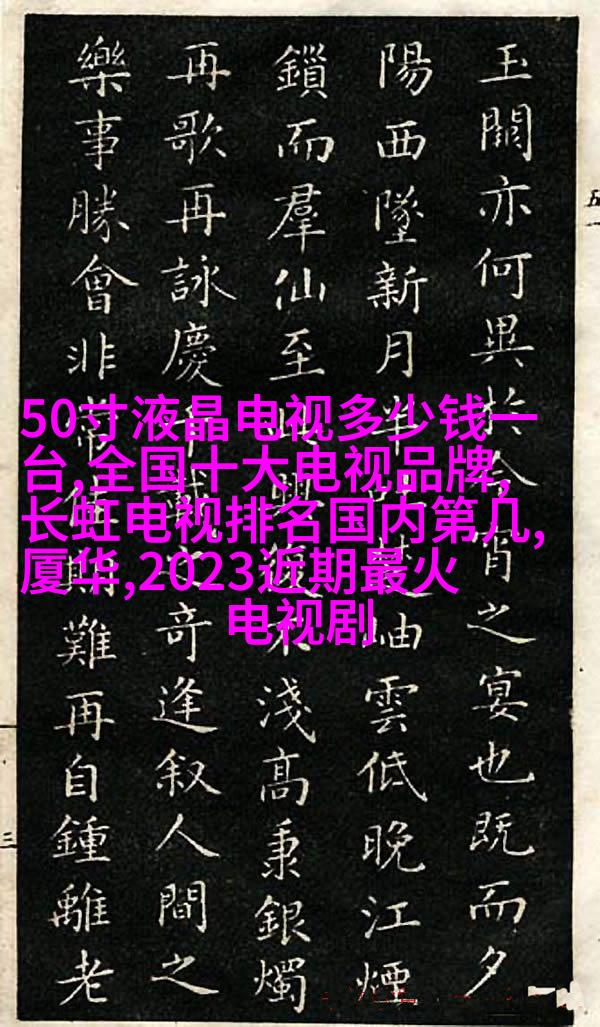 玉闕亦何異於今宵之宴也既而夕
陽西墜新月半岫雲低晚江煙
鎖而羣仙至興復不淺高秉銀燭
再歌再詠慶千之奇逢叙人間之
樂事勝會非常佳難再自鍾離老
50寸液晶电视多少钱一
台,全国十大电视品牌,
长虹电视排名国内第几,
厦华,2023近期最火
电视剧
五一
三